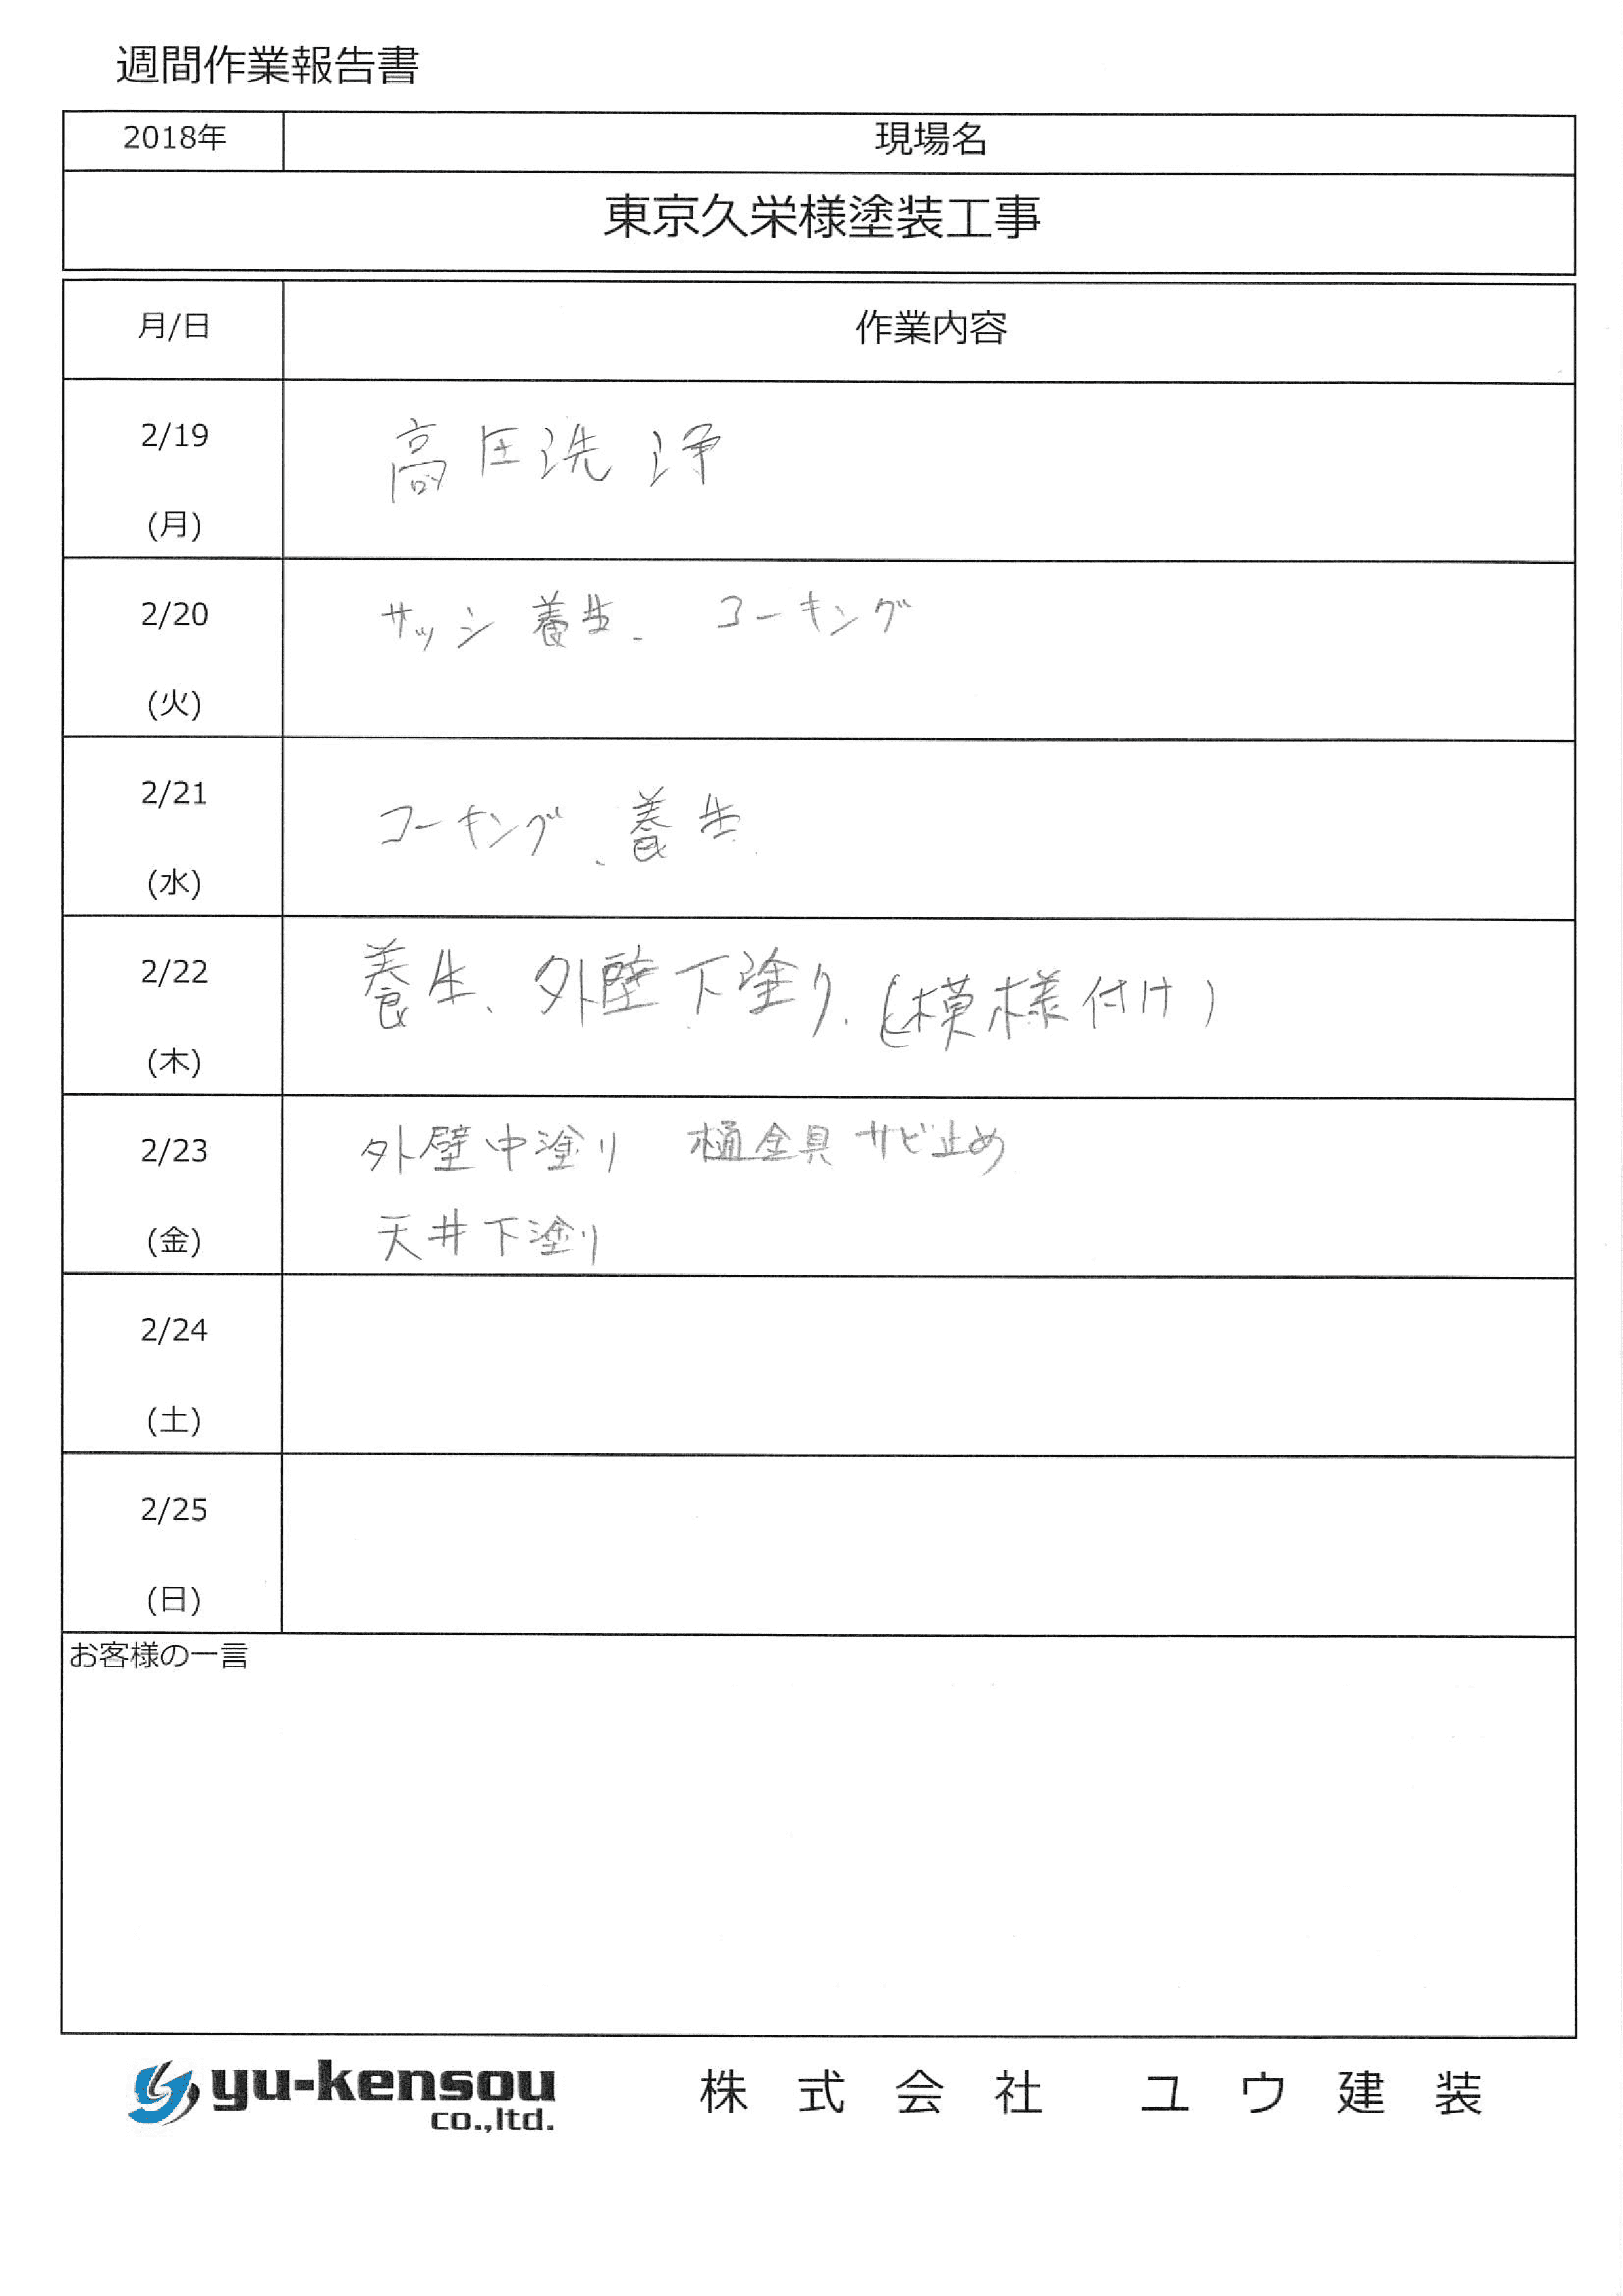 週間作業報告書
2018年 現場名
東京久栄様塗装工事
月/日 作業内容
2/19
(月)
高圧洗浄
2/20
(火)
サッシ養生、コーキング
2/21
(水)
コーキング、養生
2/22
(木)
養生、外壁下塗り、(模様付け)
2/23
(金)
外壁中塗り 樋金具サビ止め
天井下塗り
2/24
(土)
2/25
(日)
お客様の一言
yu-kensou
co.,ltd.
株式会社 ユウ建装